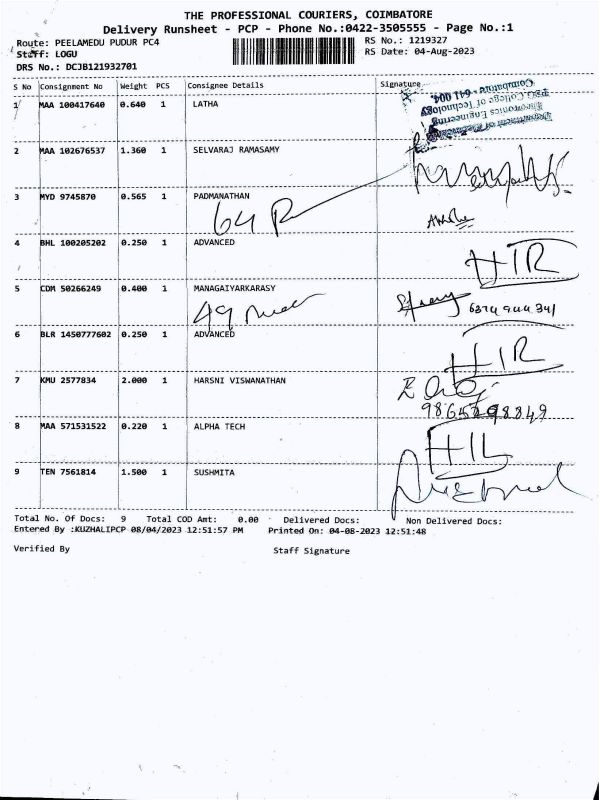 THE PROFESSIONAL COURIERS, COIMBATORE
Delivery Runsheet - PCP - Phone No.:0422-3505555 - Page No.:1
Route: PEELAMEDU PUDUR PC4 RS No.: 1219327
Staff: LOGU RS Date: 04-Aug-2023
DRS No.: DCJB121932701
S No Consignment No Weight PCS Consignee Details Signature
1 MAA 100417640 0.640 1 LATHA
Department of
Electronics Engineering
PSG College of Technology
Coimbatore - 641 004.
2 MAA 102676537 1.360 1 SELVARAJ RAMASAMY
3 MYD 9745870 0.565 1 PADMANATHAN
64 R
4 BHL 100205202 0.250 1 ADVANCED
HIR
5 CDM 50266249 0.400 1 MANAGAIYARKARASY
49 6374 944 341
6 BLR 1450777602 0.250 1 ADVANCED
HIR
7 KMU 2577834 2.000 1 HARSNI VISWANATHAN
8 MAA 571531522 0.220 1 ALPHA TECH
HIL
9 TEN 7561814 1.500 1 SUSHMITA
Total No. Of Docs: 9 Total COD Amt: 0.00 Delivered Docs: Non Delivered Docs:
Entered By :KUZHALIPCP 08/04/2023 12:51:57 PM Printed On: 04-08-2023 12:51:48
Verified By Staff Signature